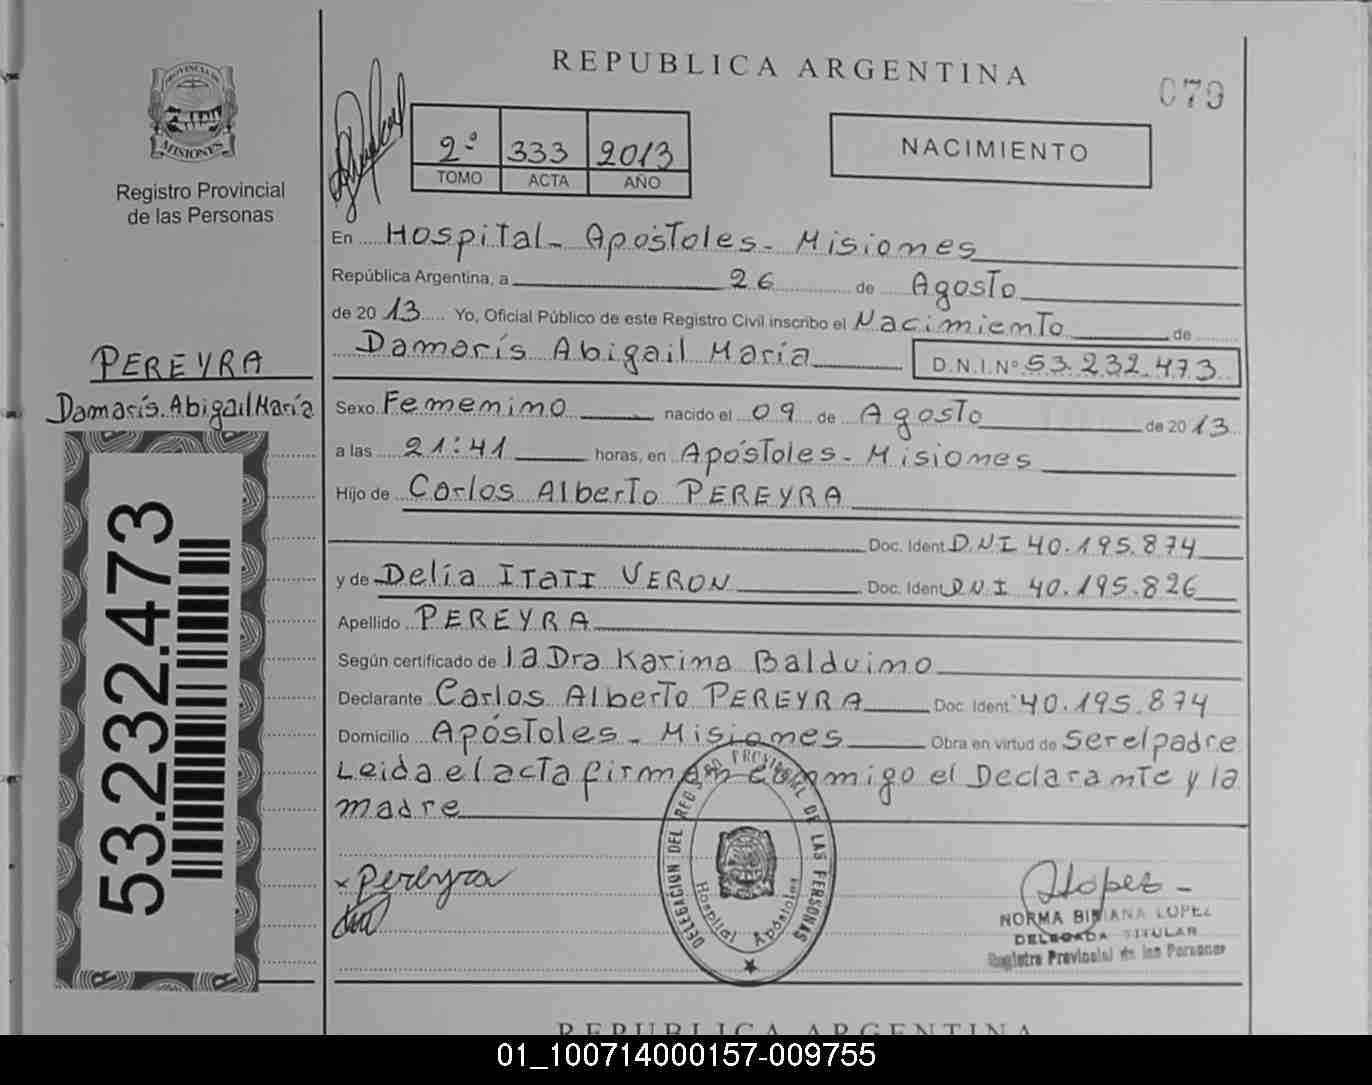 REPUBLICA ARGENTINA
079
PROVINCIA DE
MISIONES
Registro Provincial
de las Personas
2º 333 2013
TOMO ACTA AÑO
NACIMIENTO
En Hospital - Apóstoles - Misiones
República Argentina, a 26 de Agosto
de 2013 Yo, Oficial Público de este Registro Civil inscribo el Nacimiento de
Damarís Abigail María D.N.I.Nº 53.232.473
PEREYRA
Damarís Abigail María
Sexo Femenino nacido el 09 de Agosto de 2013
a las 21:41 horas, en Apóstoles - Misiones
Hijo de Carlos Alberto PEREYRA
Doc. Ident. DNI 40.195.874
y de Delia Itatí VERON Doc. Ident. DNI 40.195.826
Apellido PEREYRA
Según certificado de la Dra Karina Balduino
Declarante Carlos Alberto PEREYRA Doc. Ident. 40.195.874
Domicilio Apóstoles - Misiones Obra en virtud de ser el padre
Leida el acta firman conmigo el Declarante y la
madre
53.232.473
x Pereyra
DELEGACION DEL REGISTRO PROVINCIAL DE LAS PERSONAS
Hospital Apóstoles
NORMA BIBIANA LOPEZ
DELEGADA TITULAR
Registro Provincial de las Personas
REPUBLICA ARGENTINA
01_100714000157-009755